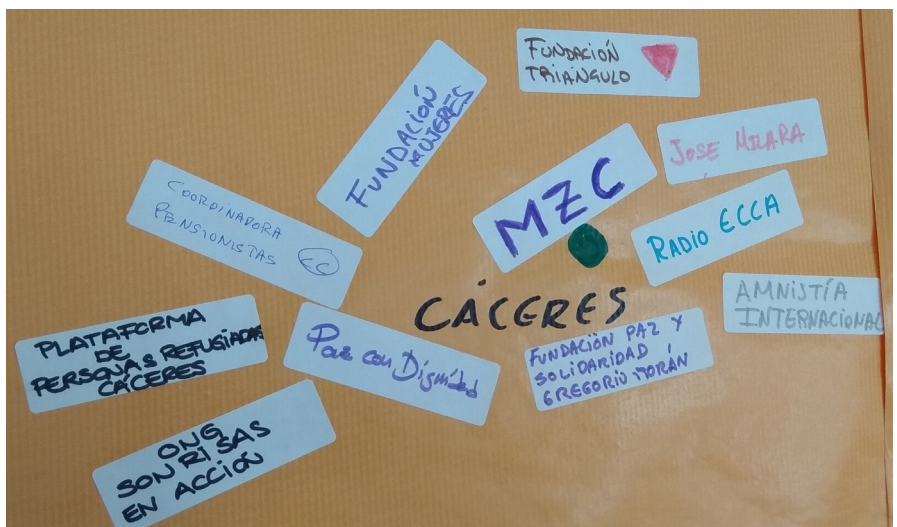 FUNDACIÓN
TRIÁNGULO
FUNDACIÓN
MUJERES
JOSE MILARA
MZC
RADIO ECCA
COORDINADORA
PENSIONISTAS CC
AMNISTÍA
INTERNACIONAL
CÁCERES
PLATAFORMA
DE
PERSONAS REFUGIADAS
CÁCERES
Paz con Dignidad
FUNDACIÓN PAZ Y
SOLIDARIDAD
GREGORIO MORÁN
ONG
SONRISAS
EN ACCIÓN